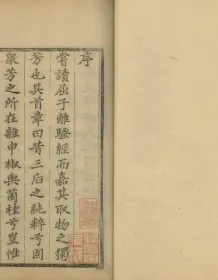 序
嘗讀屈子離騷經而嘉其取物之獨
芳也其首章曰昔三后之純粹兮固
衆芳之所在雜申椒與菌桂兮豈惟